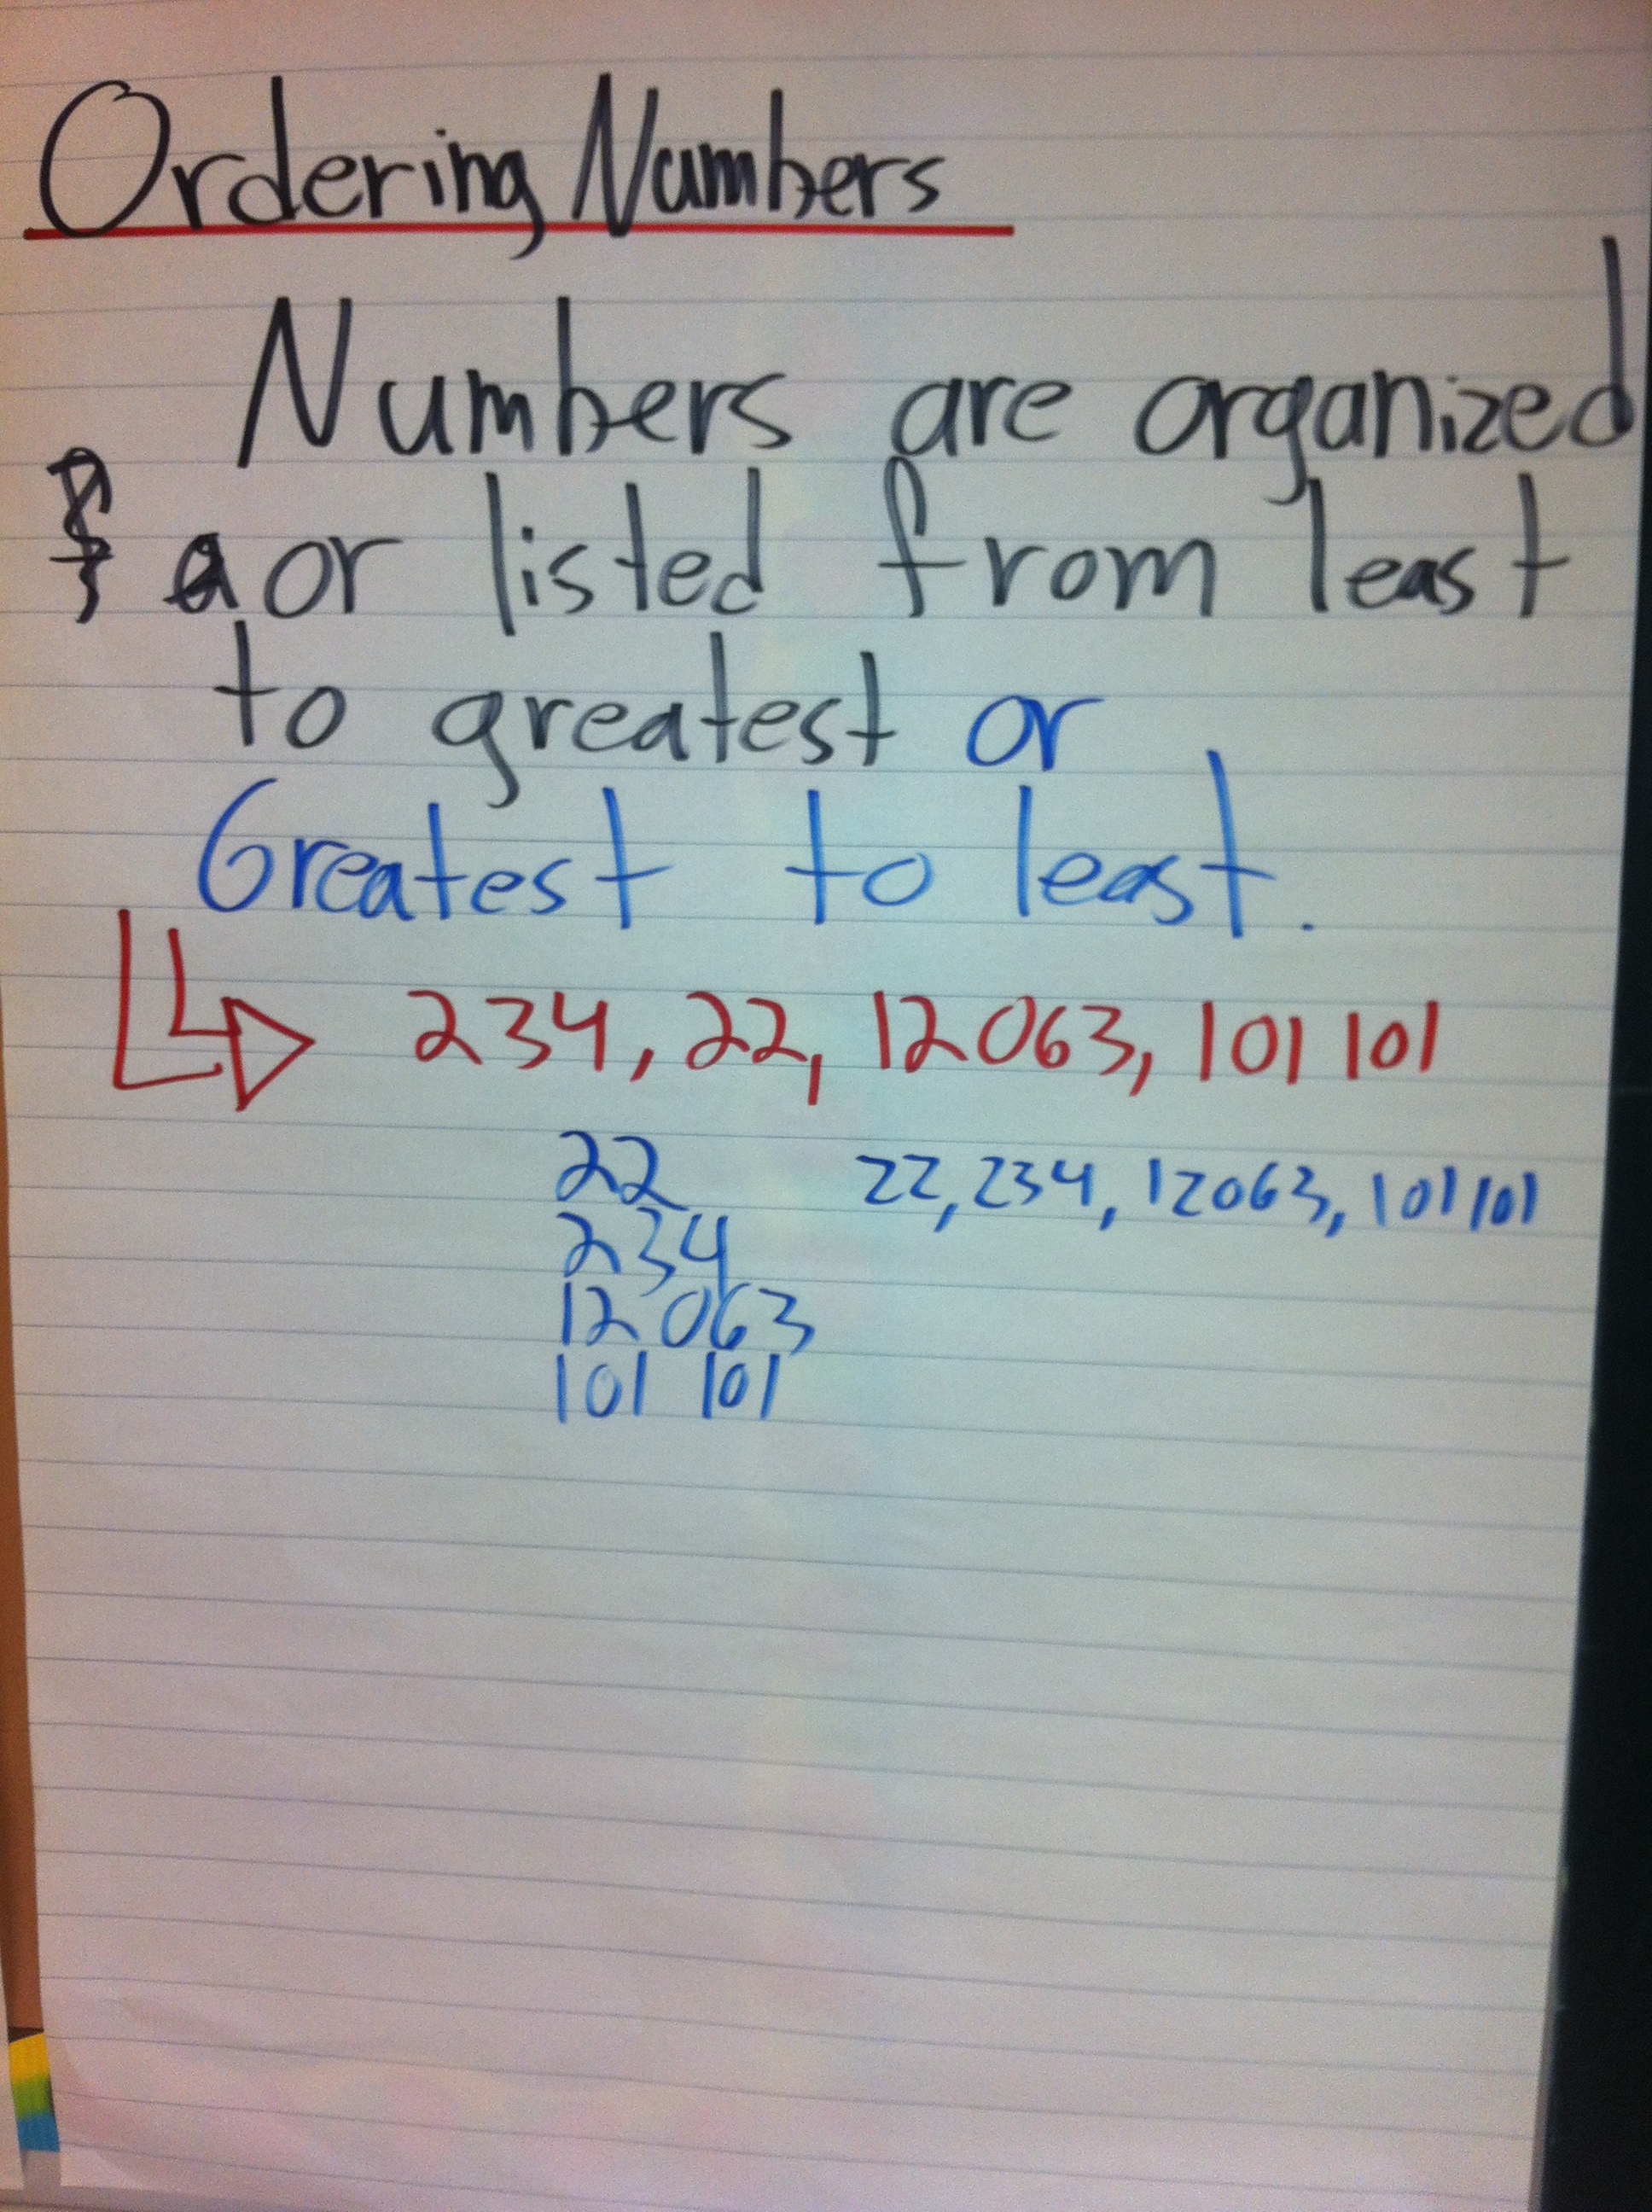 Ordering Numbers
Numbers are organized
or listed from least
to greatest or
Greatest to least.
234, 22, 12 063, 101 101
22 22, 234, 12063, 101 101
234
12 063
101 101